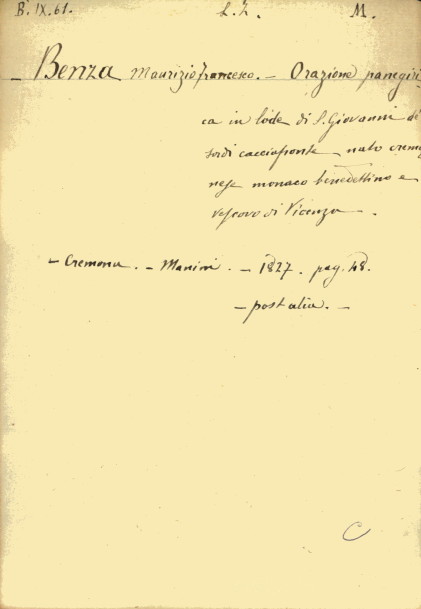 B. IX. 61. L. Z. M.
— Benza Maurizio francesco. — Orazione panegiri
ca in lode di S. Giovanni de
sordi cacciafronte nato cremo
nese monaco benedettino e
vescovo di Vicenza — .
— Cremona. — Manini. — 1827. pag. 48.
— post alia. —
C